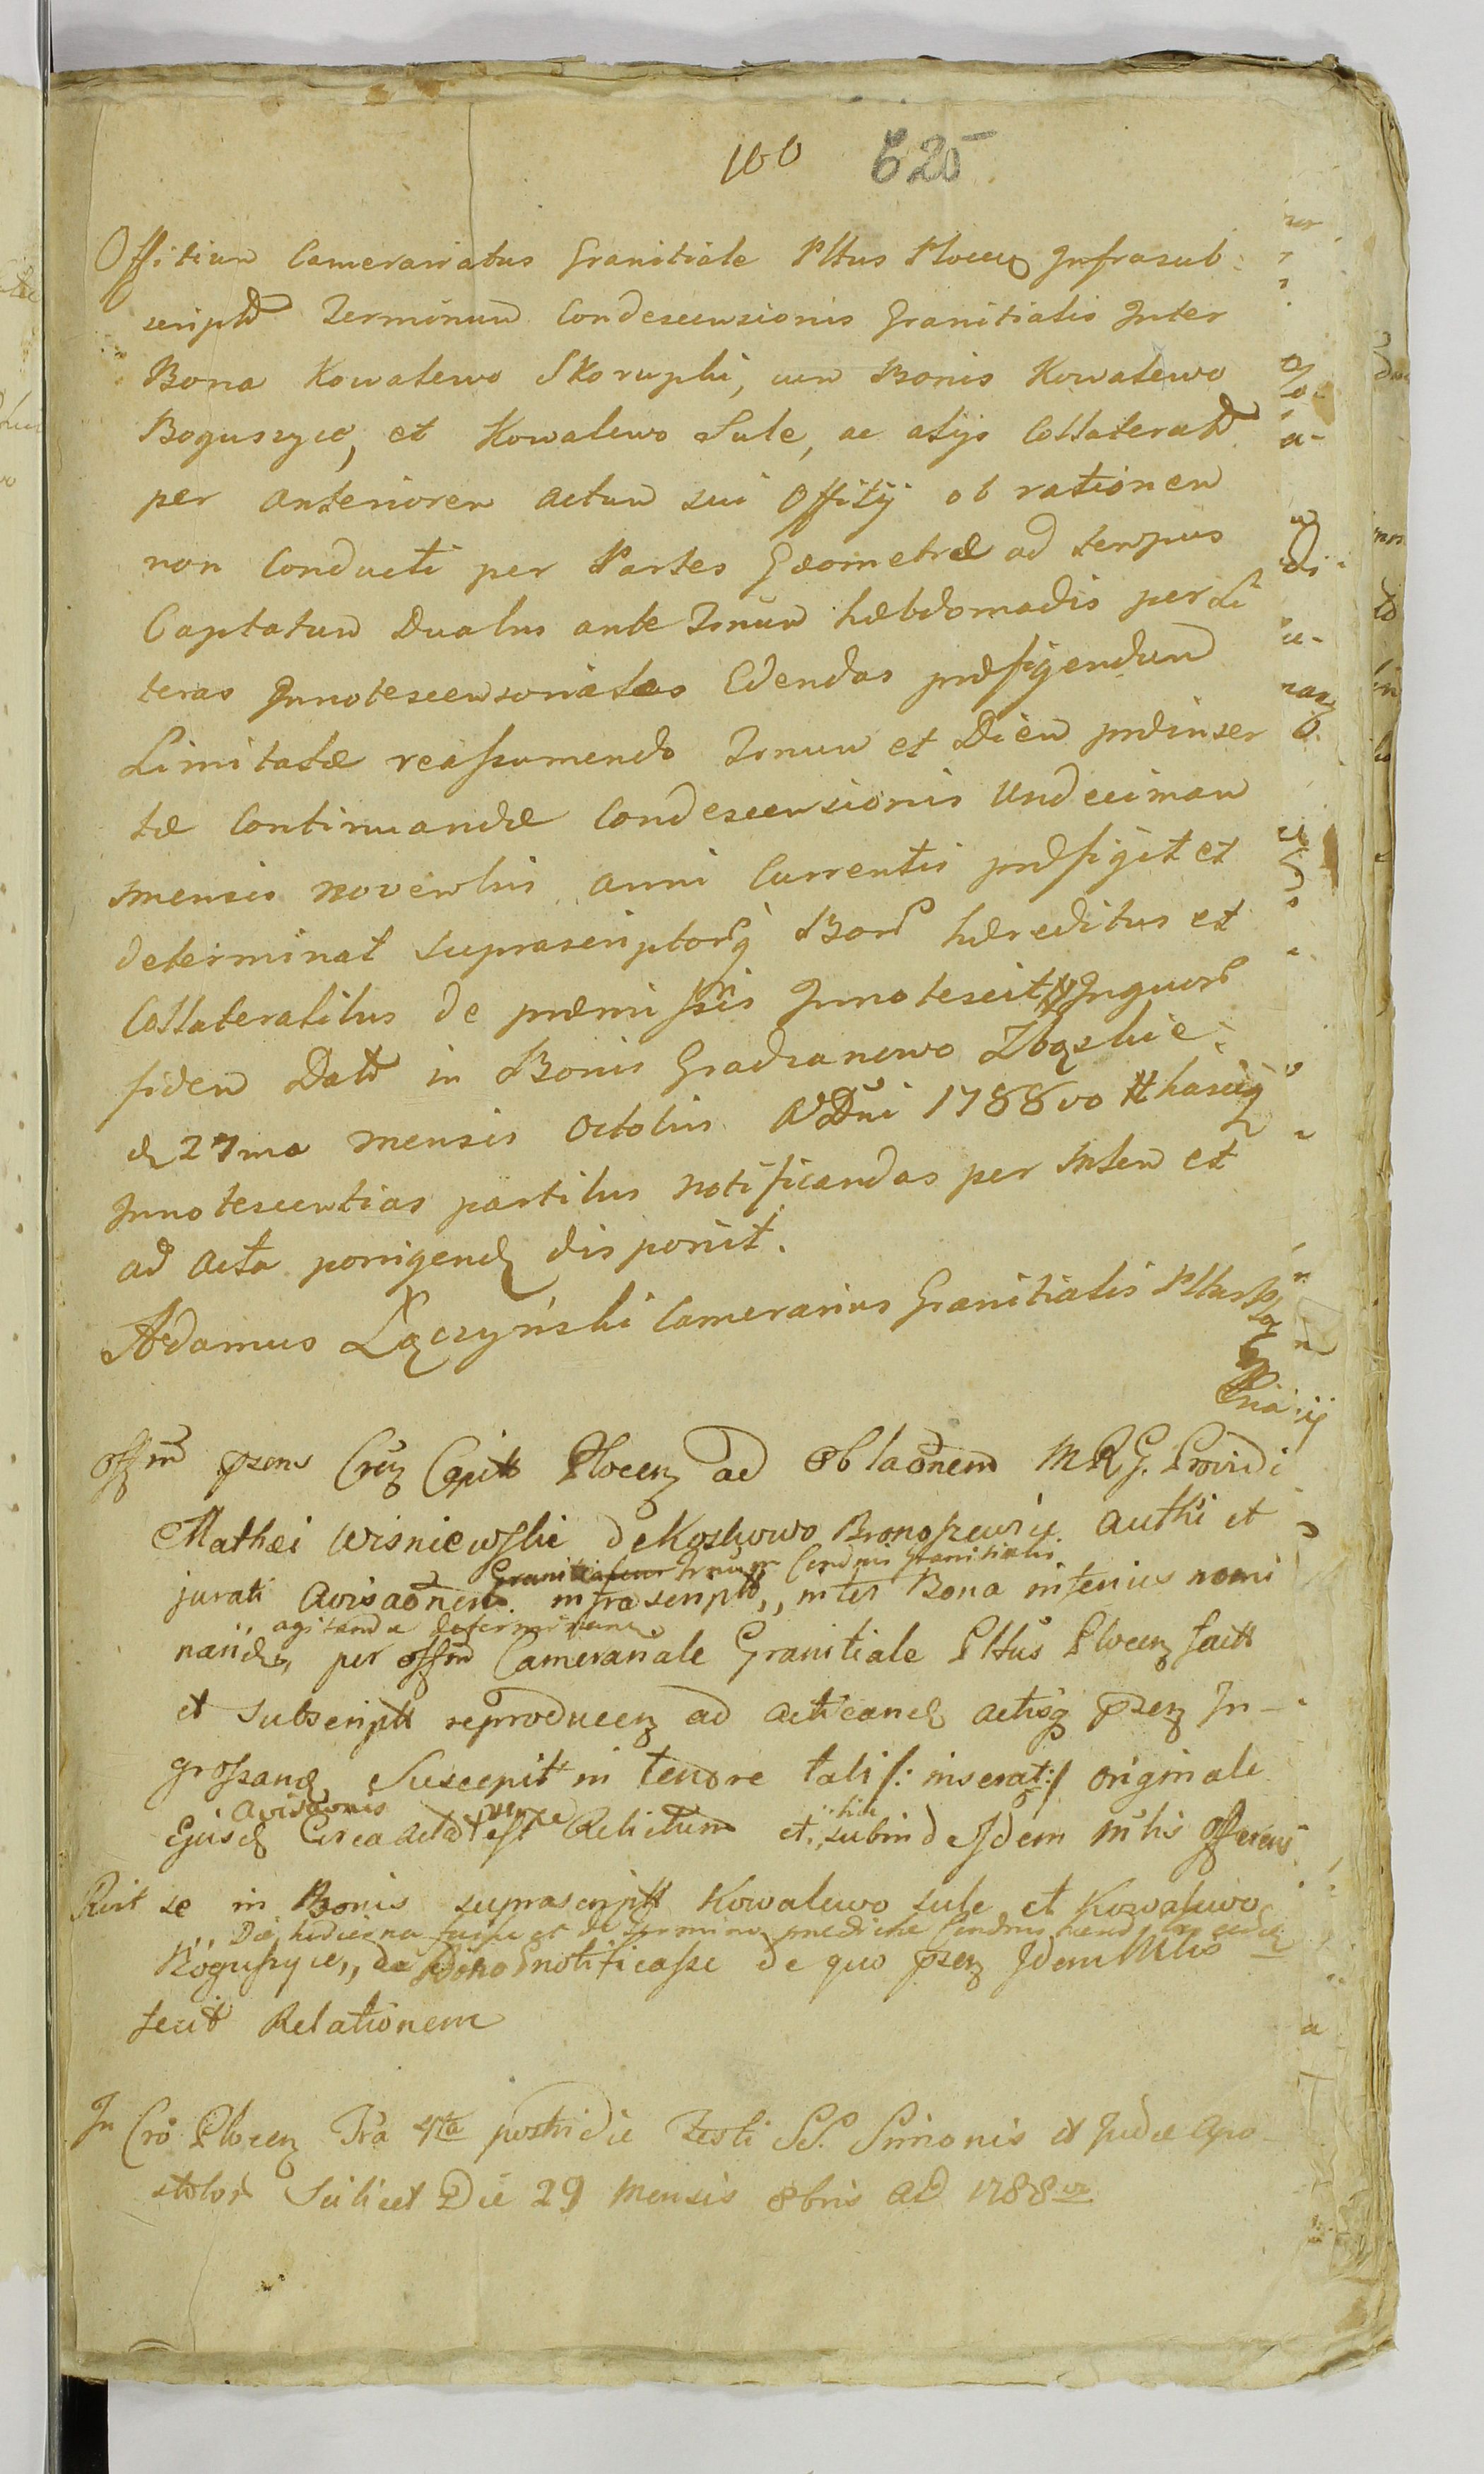 100 625
Offitium Camerariatus Granitiale Pltus Plocen Infrasub-
scriptu Terminum Condescensionis Granitialis Inter
Bona Kowalewo Skorupki, cum Bonis Kowalewo
Boguszyce, et Kowalewo Sule, ac alijs Collateral
per anteriorem actum sui Offitij ob rationem
non Conducti per Partes Geometræ ad tempus
Captatum Duabus ante Trnum hæbdomadis per Li
teras Innotescensoriales Edendas præfigendum
Limitatæ reassumendo Trnum et Diem præinser
tæ Continuandæ Condescensionis Undecimam
mensis novembris anni Currentis præfigit et
determinat suprascriptorq Bonr hæreditus et
Collateralibus de præmissis Innotescit Inquor
fidem Dat in Bonis Gradzanowo Zbąskie
d 27ma mensis octobris A Dni 1788vo hascq
Innotescentias partibus notificandas per Mlem et
ad acta porrigend disponit.
Adamus Łączyński Camerarius Granitialis Pltus Ploc
offm psens Cren Capitt Plocen ad oblaonem MRG. Providi
Mathei Wisniewski de Koskowo Bronoszewice authi et
Granitialem Trnum Condnis Granitialis
jurati avisaonem infrascript,, inter Bona inferius nomi
agitanda determinan
nand, per offm Camerariale Granitiale Pltus Plocen factt
et subscriptt reproducen ad acticand actisq psen In-
grossand Suscepit in tenore tali /: inserat:/ originale
avisaonis
Ejusd Circa acta est Relictum et,, subinde Idem Mlis offerens
hic
Rcit se in Bonis suprascriptt Kowalewo Sule et Kowalewo
Die hodierna fuisse et de termino prædictæ Condnis
Boguszyce,, notificasse de quo psen Idem Mlis
fecit Relationem
In Cro Plocen Fra 4ta postridie Festi SS. Simonis et Judæ Apo
stolor Scilicet Die 29 mensis 8bris AD 1788vo